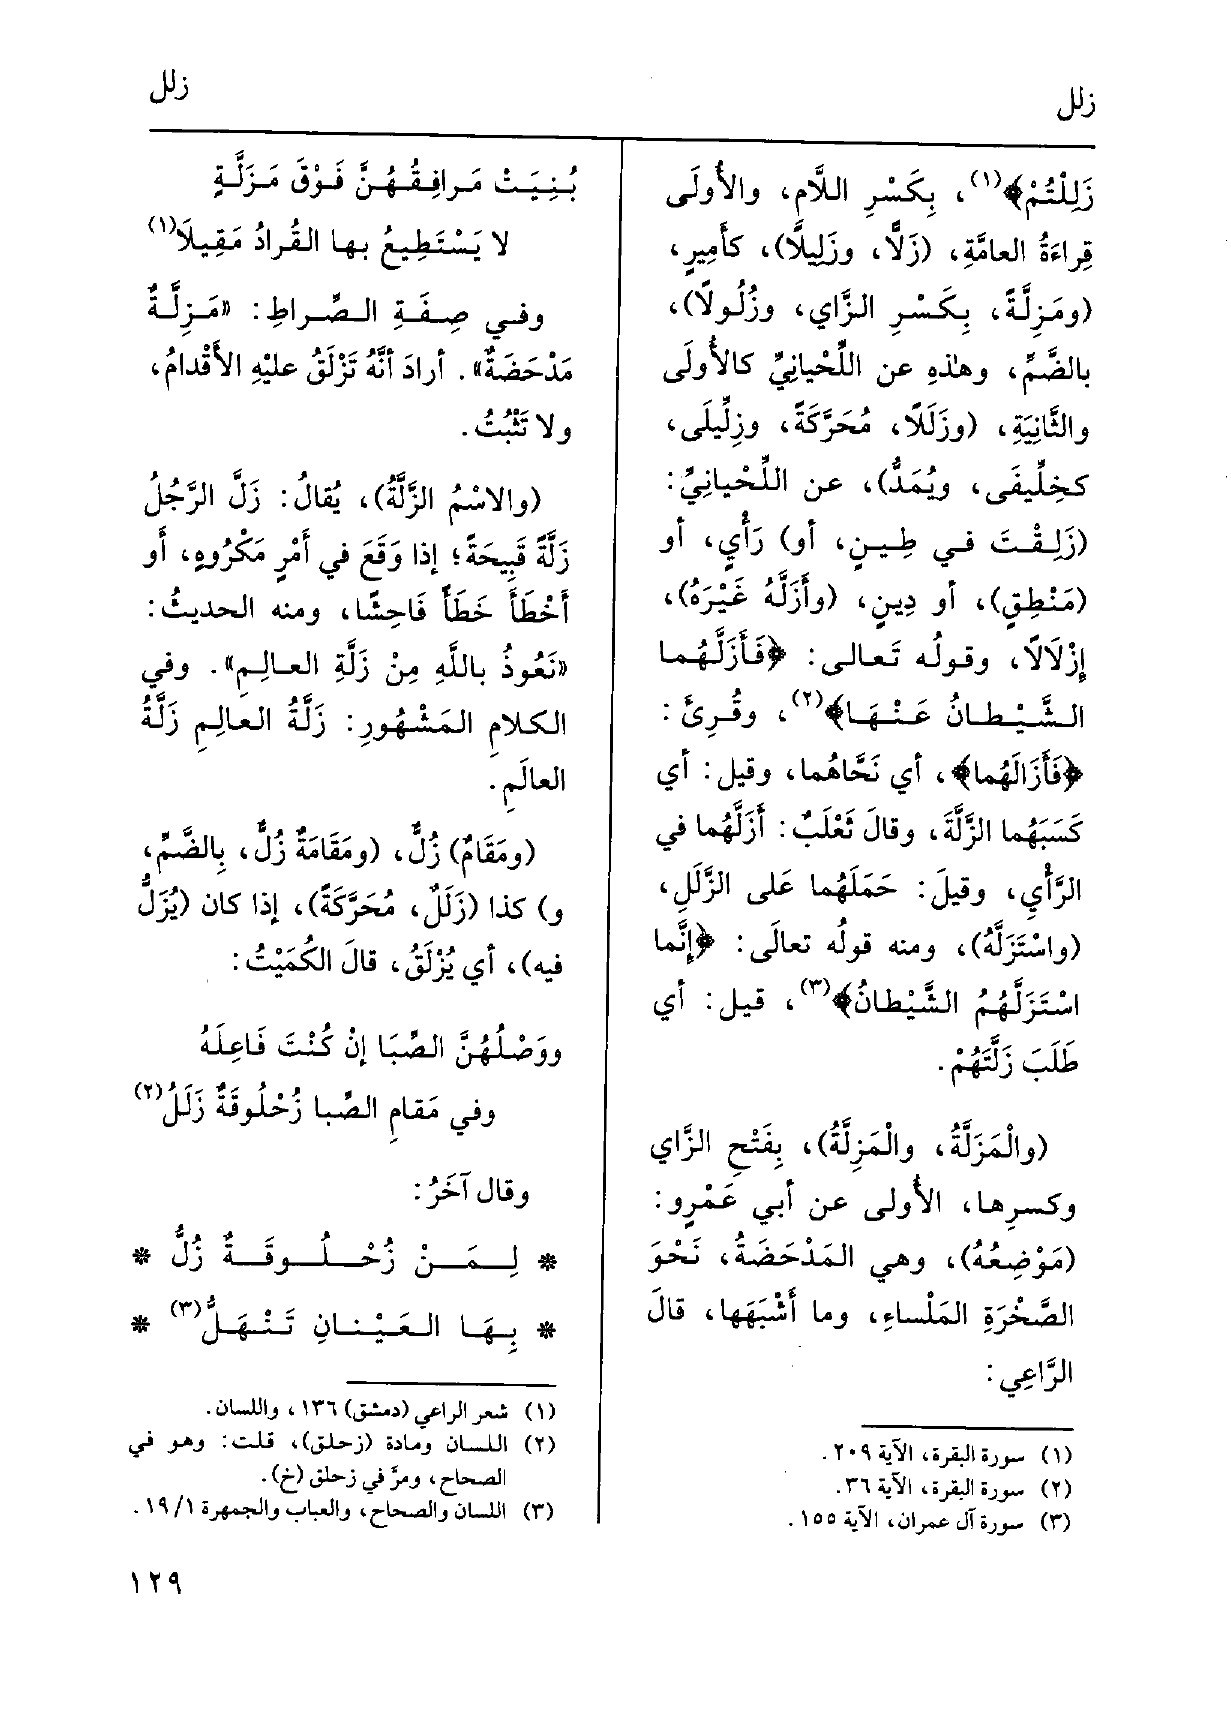 زلل
زلل
زَلِلْتُمْ﴾(١)، بِكَسْرِ اللَّامِ، والأُولَى
قِراءَةُ العامَّةِ، (زَلاًّ، وزَلِيلًا)، كأَمِيرٍ،
(ومَزِلَّةً، بِكَسْرِ الزَّايِ، وزُلُولًا)،
بالضَّمِّ، وهٰذه عن اللِّحْيانِيِّ كالأُولَى
والثَّانِيَةِ، (وزَلَلًا، مُحَرَّكَةً، وزِلِّيلَى،
كخِلِّيفَى، ويُمَدُّ)، عن اللِّحْيانِيِّ:
(زَلِقْتَ في طِينٍ، أو) رَأْيٍ، أو
(مَنْطِقٍ)، أو دِينٍ، (وأَزَلَّهُ غَيْرَهُ)،
إِزْلَالًا، وقولُه تَعالى: ﴿فَأَزَلَّهُما
الشَّيْطانُ عَنْهَا﴾(٢)، وقُرِئَ:
﴿فَأَزَالَهُما﴾، أي نَحَّاهُما، وقيل: أي
كَسَبَهُما الزَّلَّةَ، وقالَ ثَعْلَبٌ: أَزَلَّهُما في
الرَّأْيِ، وقيلَ: حَمَلَهُما عَلى الزَّلَلِ،
(واسْتَزَلَّهُ)، ومنه قولُه تعالَى: ﴿إِنَّما
اسْتَزَلَّهُمُ الشَّيْطانُ﴾(٣)، قيل: أي
طَلَبَ زَلَّتَهُمْ.
(والْمَزَلَّةُ، والْمَزِلَّةُ)، بِفَتْحِ الزَّاي
وكسرِها، الأُولى عن أبي عَمْرٍو:
(مَوْضِعُهُ)، وهي المَدْحَضَةُ، نَحْوَ
الصَّخْرَةِ المَلْساءِ، وما أَشْبَهَها، قالَ
الرَّاعِي:
(١) سورة البقرة، الآية ٢٠٩.
(٢) سورة البقرة، الآية ٣٦.
(٣) سورة آل عمران، الآية ١٥٥.
بُنِيَتْ مَرافِقُهُنَّ فَوْقَ مَزَلَّةٍ
لا يَسْتَطِيعُ بها القُرادُ مَقِيلَا(١)
وفي صِفَةِ الصِّراطِ: «مَزِلَّةٌ
مَدْحَضَةٌ». أرادَ أنَّهُ تَزْلَقُ عليْهِ الأَقْدامُ،
ولا تَثْبُتُ.
(والاسْمُ الزَّلَّةُ)، يُقالُ: زَلَّ الرَّجُلُ
زَلَّةً قَبِيحَةً؛ إذا وَقَعَ في أَمْرٍ مَكْرُوهٍ، أو
أَخْطَأَ خَطَأً فَاحِشًا، ومنه الحديثُ:
«نَعُوذُ باللَّهِ مِنْ زَلَّةِ العالِمِ». وفي
الكلامِ المَشْهُورِ: زَلَّةُ العالِمِ زَلَّةُ
العالَمِ.
(ومَقَامٌ) زُلٌّ، (ومَقَامَةٌ زُلٌّ، بِالضَّمِّ،
و) كذا (زَلَلٌ، مُحَرَّكَةً)، إذا كان (يُزَلُّ
فيه)، أي يُزْلَقُ، قالَ الكُمَيْتُ:
ووَصْلُهُنَّ الصِّبَا إِنْ كُنْتَ فَاعِلَهُ
وفي مَقامِ الصِّبا زُحْلُوقَةٌ زَلَلُ(٢)
وقال آخَرُ:
* لِمَنْ زُحْلُوقَةٌ زُلُّ *
* بِهَا العَيْنانِ تَنْهَلُّ(٣) *
(١) شعر الراعي (دمشق) ١٣٦، واللسان.
(٢) اللسان ومادة (زحلق)، قلت: وهو في
الصحاح، ومرَّ في زحلق (خ).
(٣) اللسان والصحاح، والعباب والجمهرة ١٩/١.
١٢٩